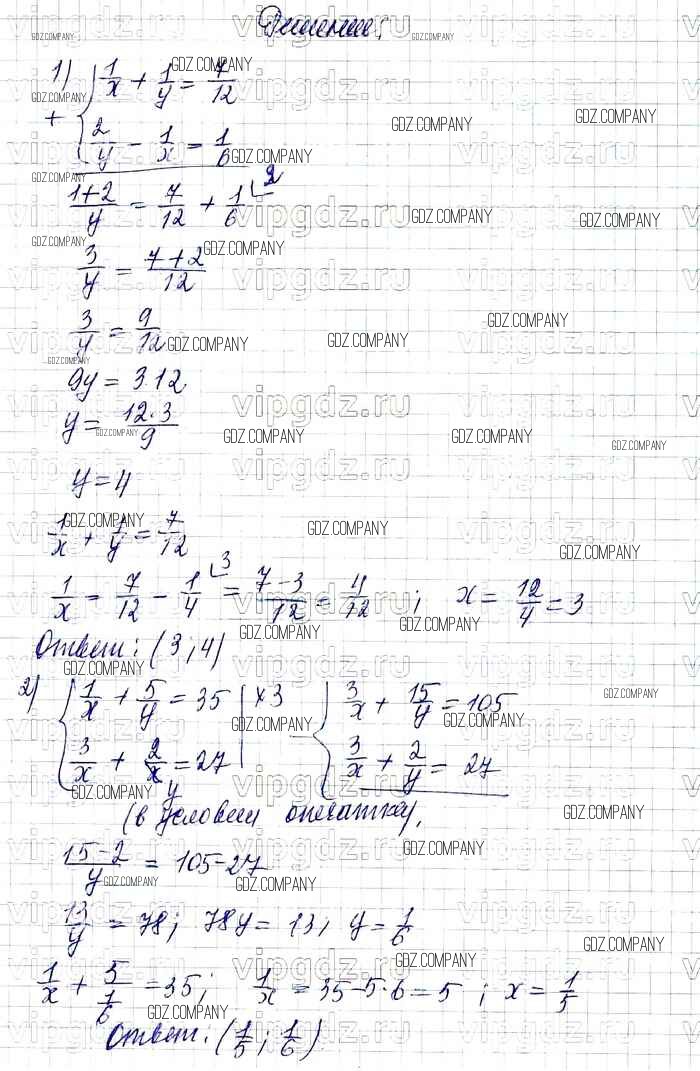 Решение:
1) { 1/x + 1/y = 7/12
+ { 2/y - 1/x = 1/6
(1+2)/y = 7/12 + 1/6 ⌞2
3/y = (7+2)/12
3/y = 9/12
9y = 3.12
y = (12.3)/9
y = 4
1/x + 1/y = 7/12
1/x = 7/12 - 1/4 ⌞3 = (7-3)/12 = 4/12 ; x = 12/4 = 3
Ответ: (3; 4)
2) { 1/x + 5/y = 35 | x3 { 3/x + 15/y = 105
{ 3/x + 2/x = 27 | - { 3/x + 2/y = 27
y
(в условии опечатка),
(15-2)/y = 105-27
13/y = 78; 78y = 13, y = 1/6
1/x + 5/(1/6) = 35; 1/x = 35-5.6 = 5 ; x = 1/5
Ответ: (1/5; 1/6)
vipgdz.ru
GDZ.COMPANY